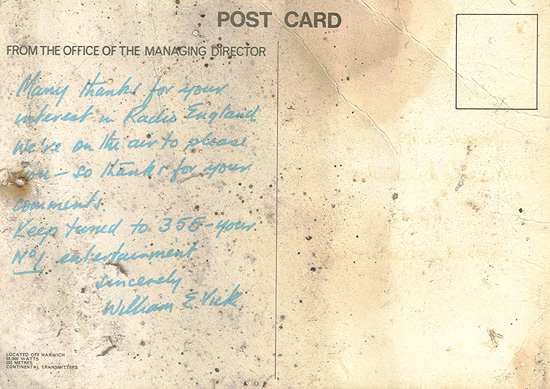 POST CARD
FROM THE OFFICE OF THE MANAGING DIRECTOR
Many thanks for your
interest in Radio England.
We're on the air to please
you - so thanks for your
comments.
Keep tuned to 355 - your
No 1 entertainment
Sincerely
William E Vick.
LOCATED OFF HARWICH
50,000 WATTS
355 METRES
CONTINENTAL TRANSMITTERS